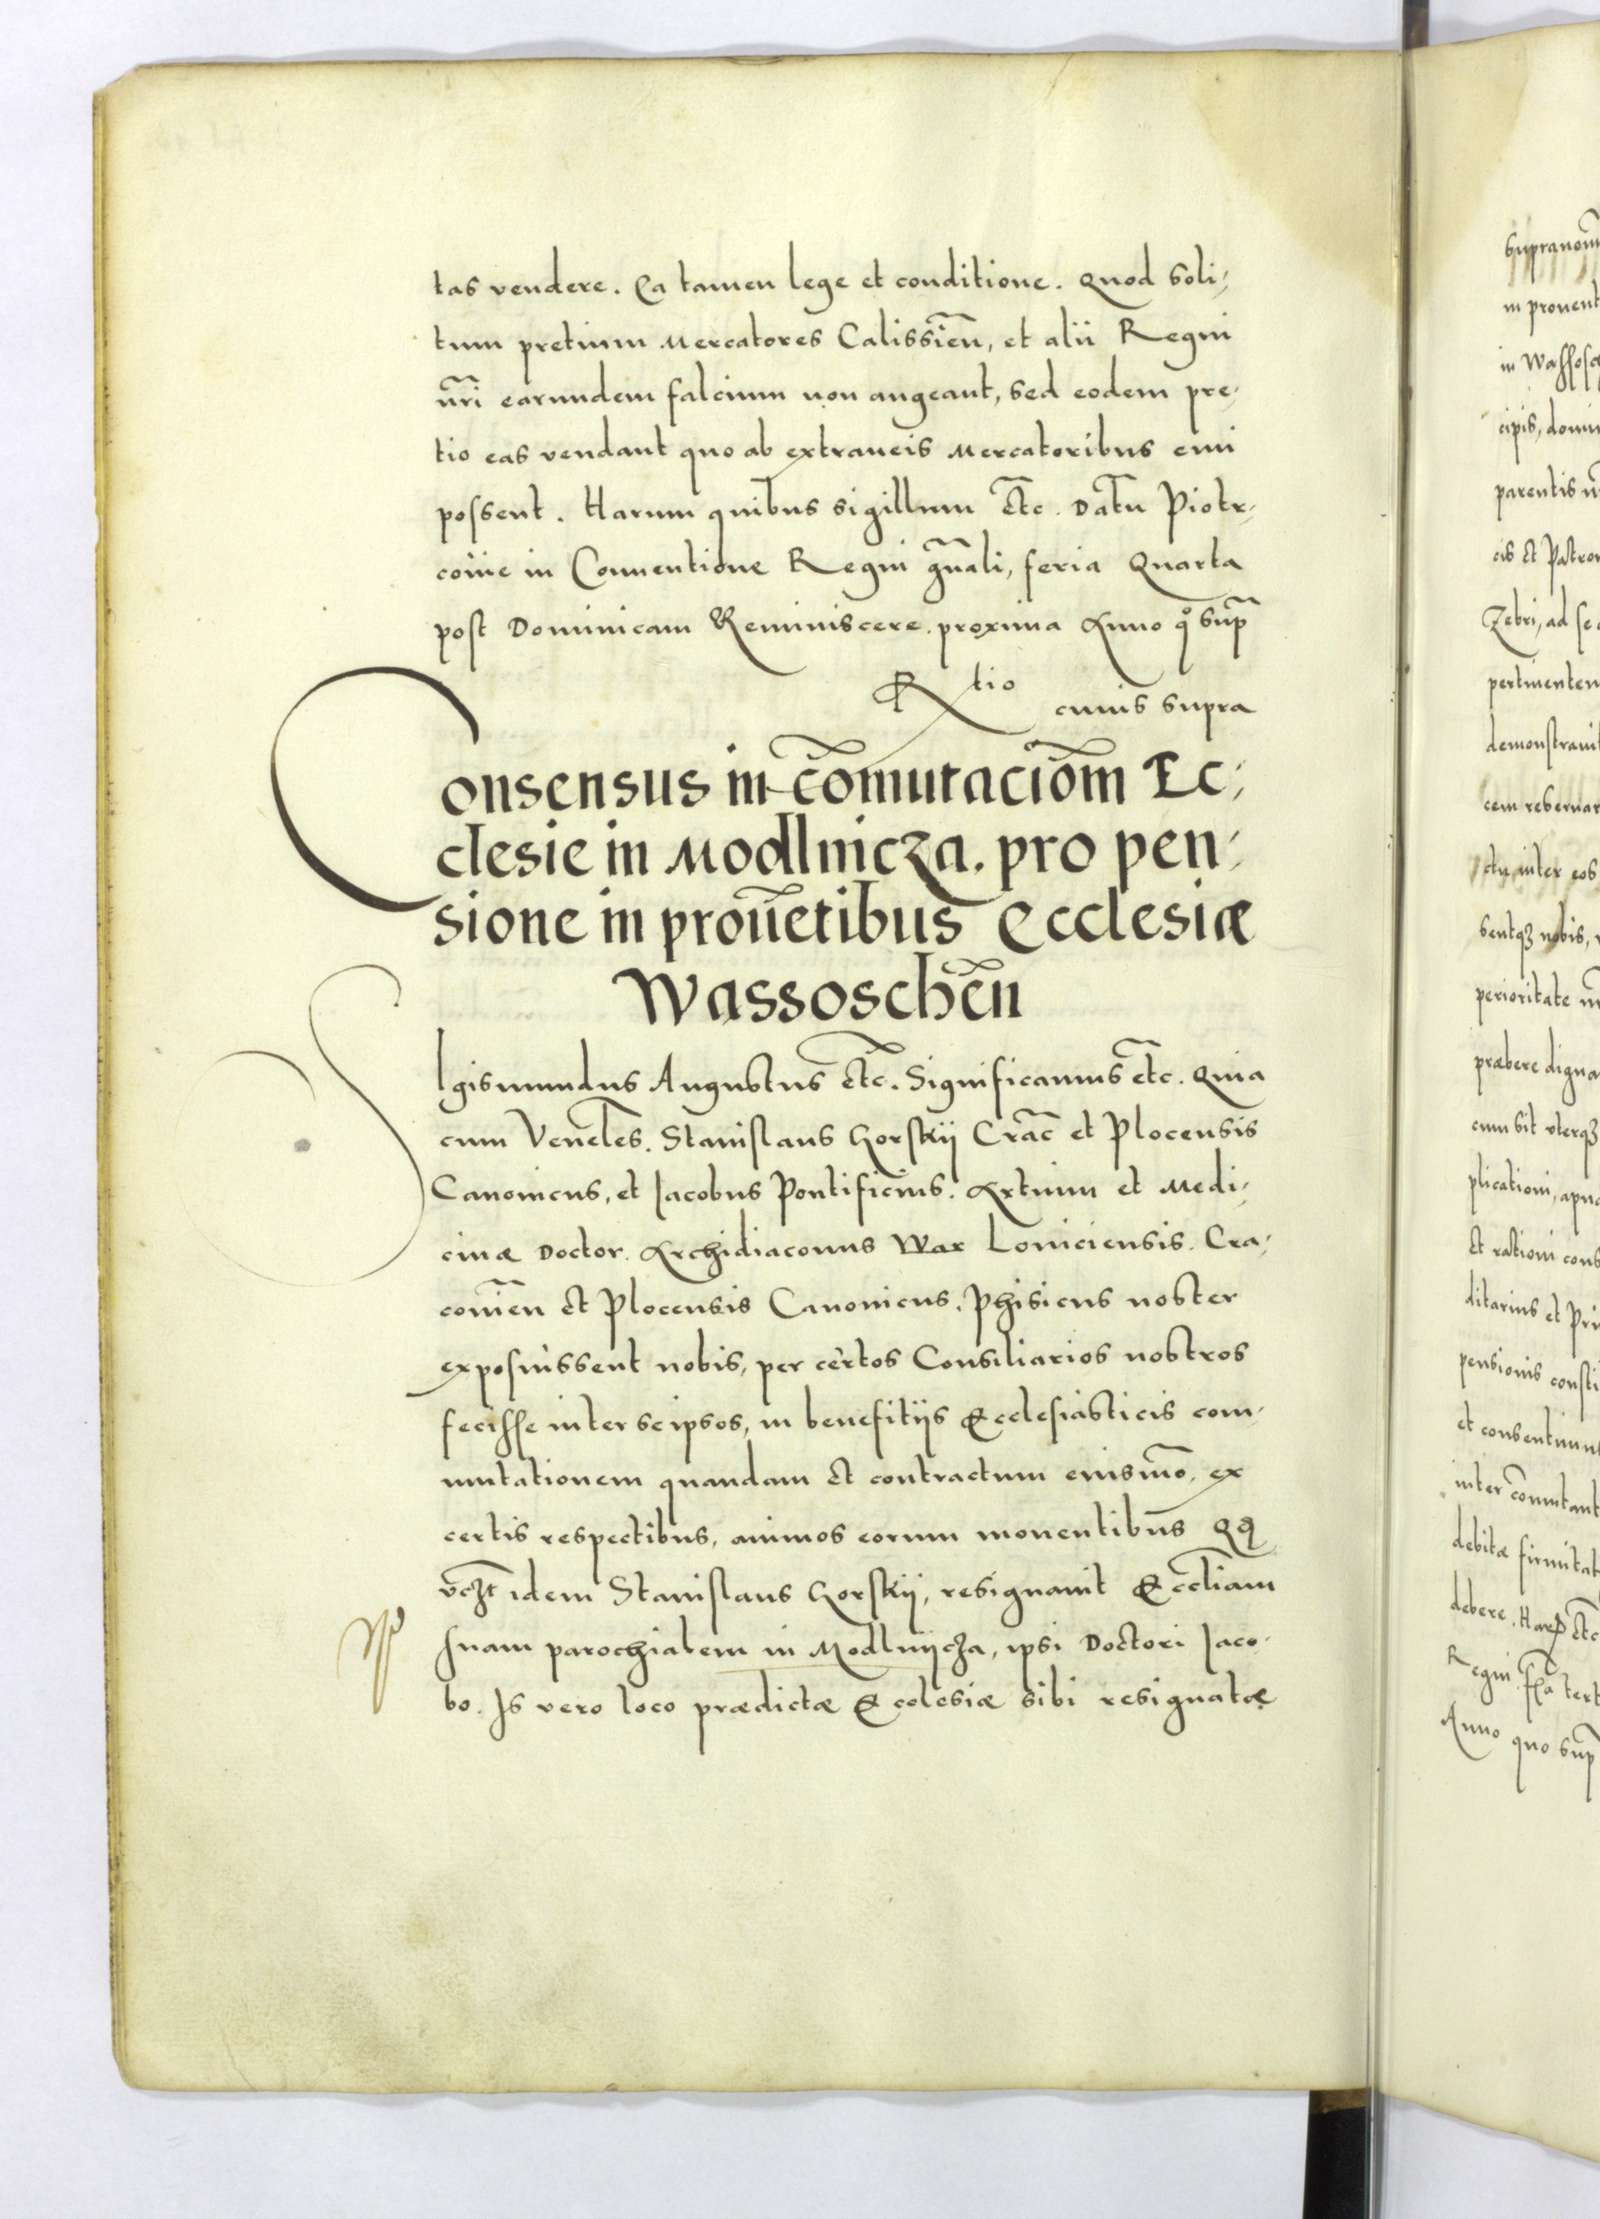 tas vendere. Ea tamen lege et conditione. Quod soli-
tum pretium Mercatores Calissień, et alii Regni
nr̃i earundem falcium non augeant, sed eodem pre-
tio eas vendant quo ab extraneis Mercatoribus emi
possent. Harum quibus sigillum etc̃. Datũ Piotr-
coviæ in Conventione Regni gñali, feria Quarta
post Dominicam Reminiscere. proxima Anno qº sup̃
Rtio
cuius supra
Consensus in cõmutaciom̃ Ec-
clesie in Modlnicza. pro pen-
sione in prouẽtibus Ecclesiæ
Wassoscheñ
SIgismundus Augustus etc̃. Significamus etc̃. Quia
cum Veneřles. Stanislaus Gorskij Crac̃ et Plocensis
Canonicus, et Jacobus Pontificius. Artium et Medi-
cinæ Doctor. Archidiaconus War Loviciensis. Cra-
covień et Plocensis Canonicus. Phisicus noster
exposuissent nobis, per certos Consiliarios nostros
fecisse inter se ipsos, in benefitijs Ecclesiasticis com-
mutationem quandam et contractum eiusmõ, ex
certis respectibus, animos eorum moventibus Qq
vcz̃t idem Stanislaus Gorskij, resignavit Eccl̃iam
suam parochialem in Modlnijcza, ipsi Doctori Jaco-
bo. Is vero loco prædictæ Ecclesiæ sibi resignatæ
supranom̃
in provent
in Wassos
cipis, domi
parentis
cis et Patro
Zebri, ad se
pertinentem
demonstravit
cem reservar
ctu inter eos
sentqz nobis,
perioritate
præbere digna
cum sit vterqz
plicationi, apu
et rationi cons
ditarius et Pri
pensionis consti
et consentimu
inter cõmutant
debitæ firmitat
debere. Har etc̃
Regni fła tert
Anno quo sup̃